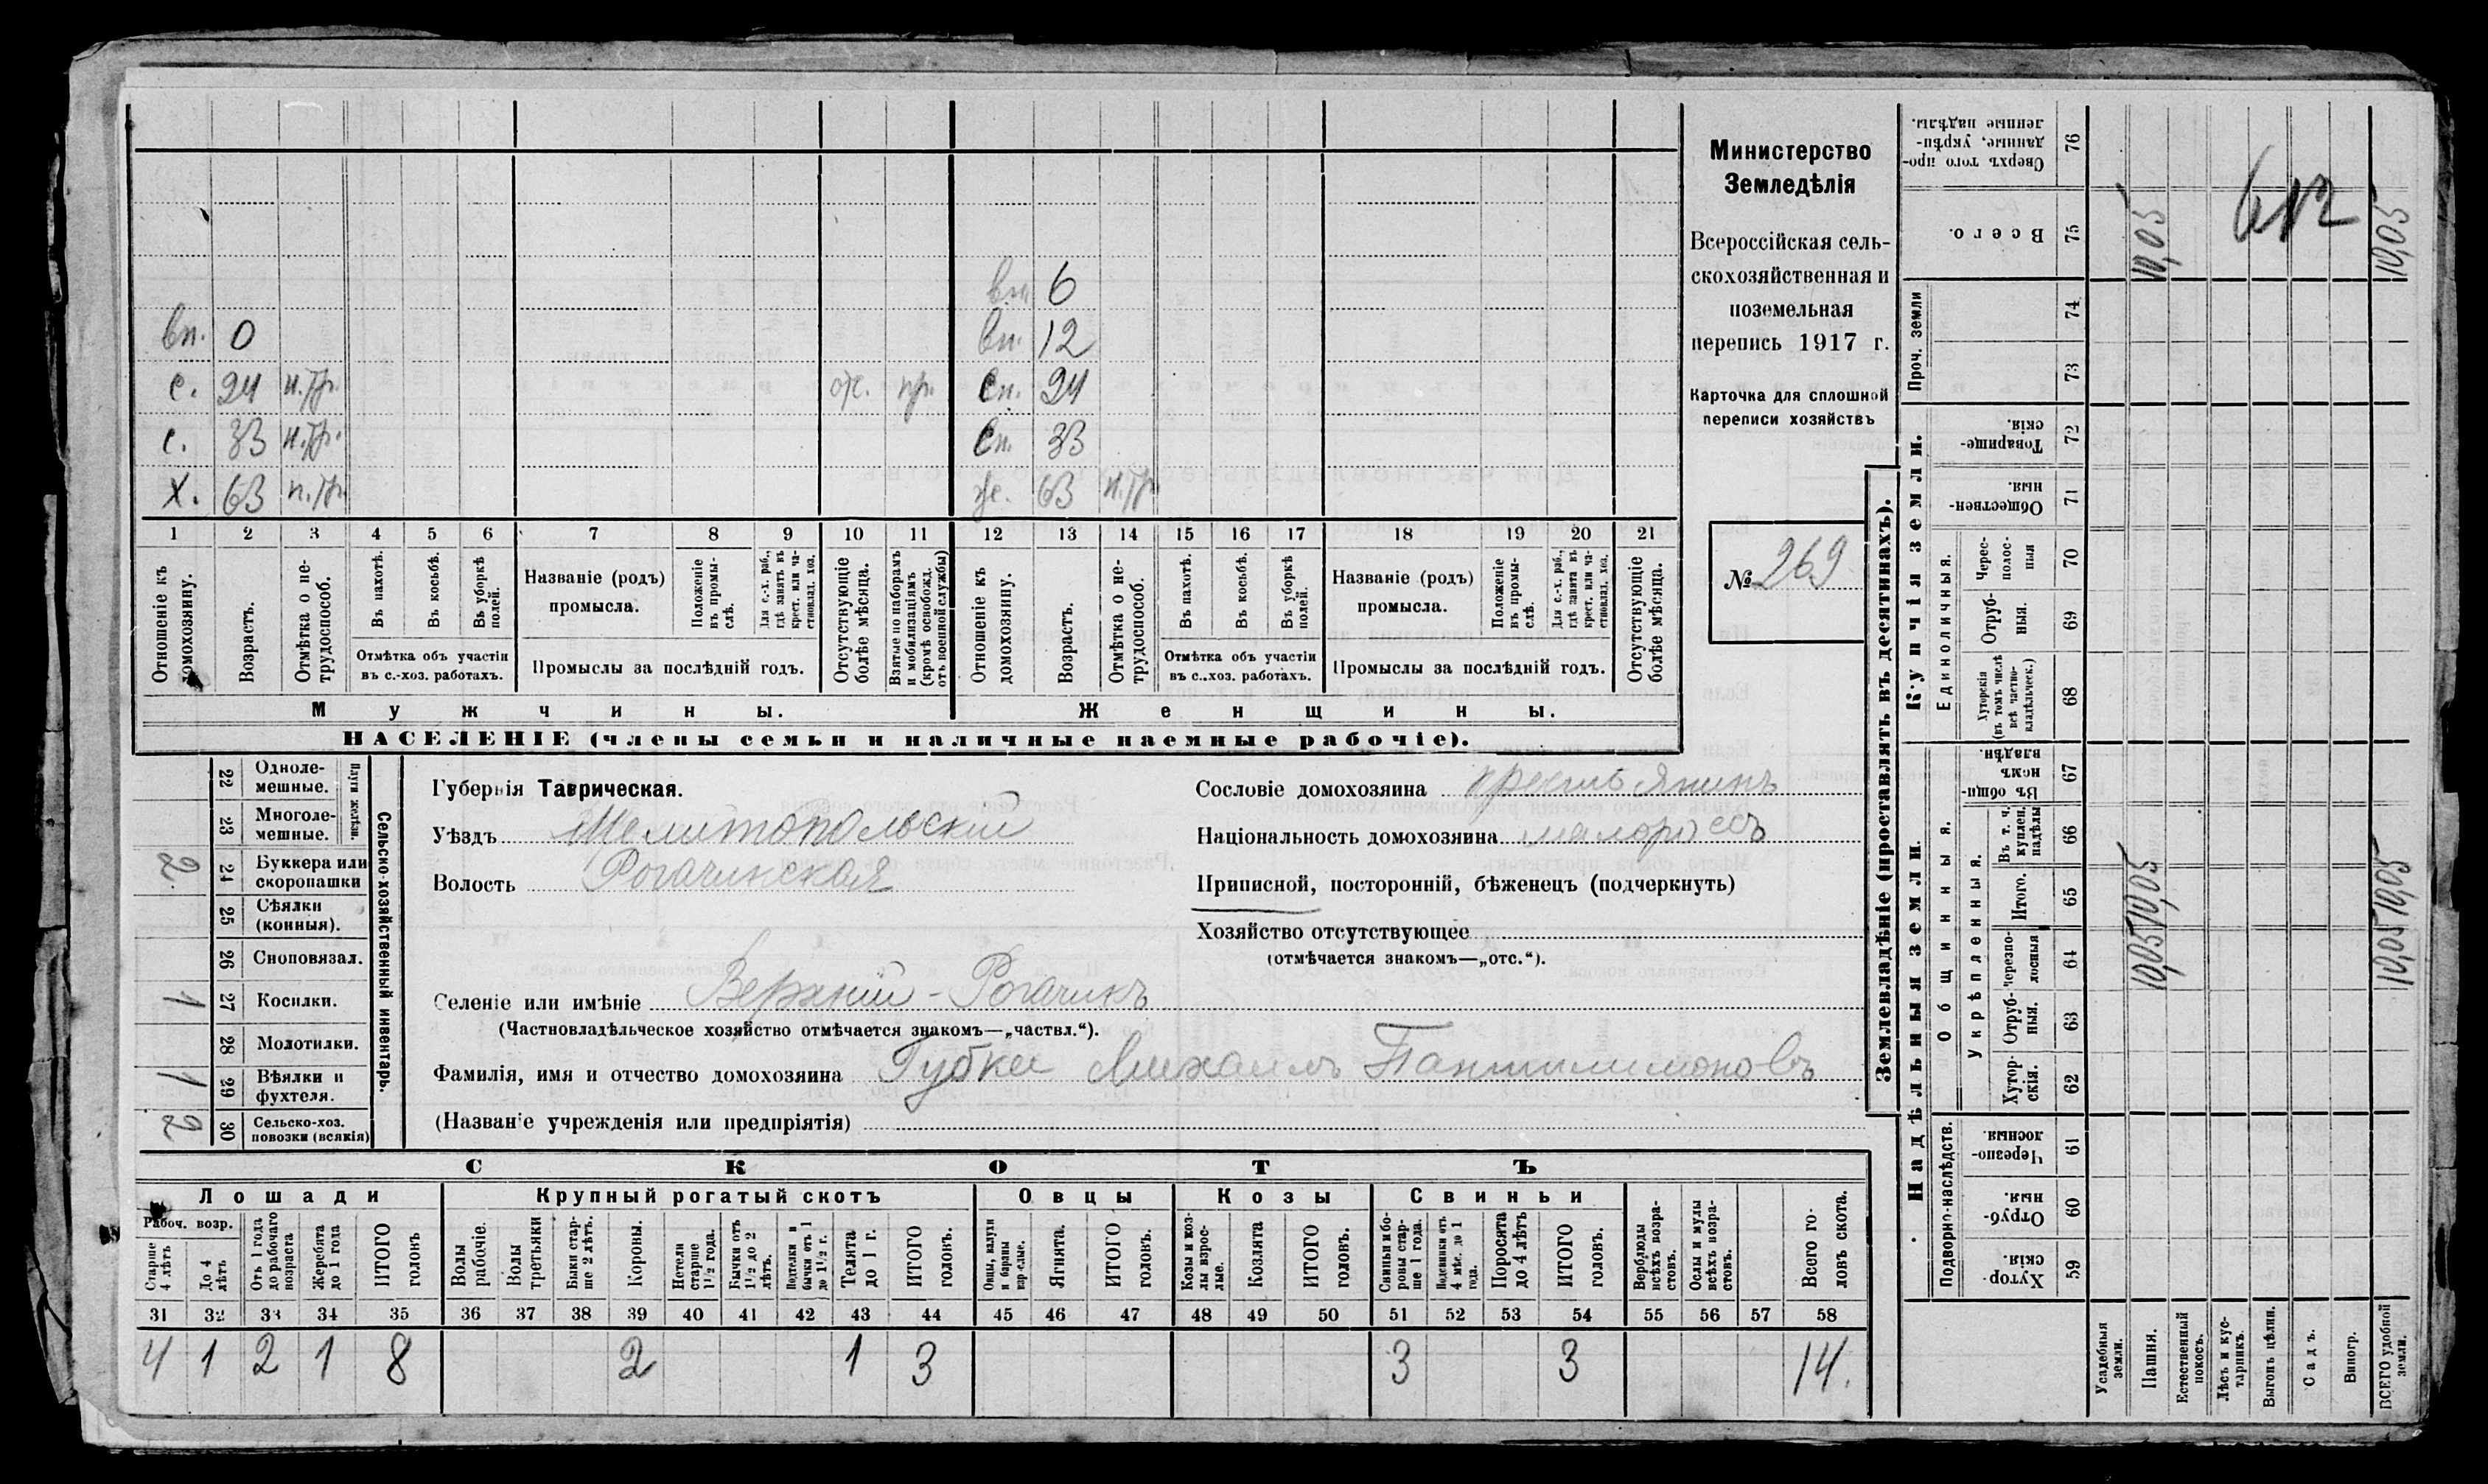 Министерство
Земледѣлія
Всероссійская сель-
скохозяйственная и
поземельная
перепись 1917 г.
Карточка для сплошной
переписи хозяйствъ
№ 269
вн. 6
вн. 0 вн. 12
с. 24 н.тр. от. пр. сн. 24
с. 33 н.тр. сн. 33
х. 63 п.тр. ж. 63 н.тр.
1 2 3 4 5 6 7 8 9 10 11 12 13 14 15 16 17 18 19 20 21
Отношеніе къ домохозяину.
Возрастъ.
Отмѣтка о не-трудоспособ.
Въ пахотѣ.
Въ косьбѣ.
Въ уборкѣ полей.
Отмѣтка объ участіи
въ с.-хоз. работахъ.
Названіе (родъ)
промысла.
Положеніе въ промы-слѣ.
Для с.-х. раб., гдѣ занятъ въ крест. или ча-стновлад. хоз.
Промыслы за послѣдній годъ.
Отсутствующіе болѣе мѣсяца.
Взятые по наборамъ и мобилизаціямъ (кромѣ освобожд. отъ военной службы)
Отношеніе къ домохозяину.
Возрастъ.
Отмѣтка о не-трудоспособ.
Въ пахотѣ.
Въ косьбѣ.
Въ уборкѣ полей.
Отмѣтка объ участіи
въ с..хоз. работахъ.
Названіе (родъ)
промысла.
Положеніе въ промы-слѣ.
Для с.-х. раб., гдѣ занята въ крест. или ча-стновлад. хоз.
Промыслы за послѣдній годъ.
Отсутствующіе болѣе мѣсяца.
Мужчины. Женщины.
НАСЕЛЕНІЕ (члены семьи и наличные наемные рабочіе).
Сельско-хозяйственный инвентарь.
22 Одноле-мешные.
23 Многоле-мешные.
2 24 Буккера или скоропашки
25 Сѣялки (конныя).
26 Сноповязал.
1 27 Косилки.
28 Молотилки.
1 29 Вѣялки и фухтеля.
2 30 Сельско-хоз. повозки (всякія)
Губернія Таврическая.
Уѣздъ Мелитопольскій
Волость Рогачикская
Селеніе или имѣніе Верхній - Рогачикъ
(Частновладѣльческое хозяйство отмѣчается знакомъ—„частвл.“).
Фамилія, имя и отчество домохозяина Губка Михаилъ Пантилимоновъ
(Названіе учрежденія или предпріятія)
Сословіе домохозяина крестьянинъ
Національность домохозяина малороссъ
Приписной, посторонній, бѣженецъ (подчеркнуть)
Хозяйство отсутствующее
(отмѣчается знакомъ—„отс.“).
СКОТЪ
Лошади Крупный рогатый скотъ Овцы Козы Свиньи
Рабоч. возр.
Старше 4 лѣтъ
До 4 лѣтъ
Отъ 1 года до рабочаго возраста
Жеребята до 1 года
ИТОГО головъ
Волы рабочіе.
Волы третьяки
Быки стар-ше 2 лѣтъ.
Коровы.
Нетели старше 1 1/2 года.
Бычки отъ 1 1/2 до 2 лѣтъ.
Подтелки и бычки отъ 1 до 1 1/2 г.
Телята до 1 г.
ИТОГО головъ.
Ягнята.
ИТОГО головъ.
Козы и коз-лы взрос-лые.
Козлята
ИТОГО головъ.
Свиньи и бо-ровы стар-ше 1 года.
Подсвинки отъ 4 мѣс. до 1 года.
Поросята до 4 лѣтъ
ИТОГО головъ.
Верблюды всѣхъ возра-стовъ.
Ослы и мулы всѣхъ возра-стовъ.
Всего го-ловъ скота.
31 32 33 34 35 36 37 38 39 40 41 42 43 44 45 46 47 48 49 50 51 52 53 54 55 56 57 58
4 1 2 1 8 2 1 3 3 3 14.
Землевладѣніе (проставлять въ десятинахъ).
Надѣльныя земли. Купчія земли. Проч. земли
Подворно-наслѣдств.
Общинныя.
Укрѣпленныя.
Единоличныя.
Сверхъ того про-данные, укрѣп-ленные надѣлы. 76
Всего. 75
74
73
Товарище-скія. 72
Обществен-ныя. 71
Черес-полос-ныя 70
Отруб-ныя. 69
Хуторскія (въ томъ числѣ всѣ частно-владѣльческ.) 68
Въ общин-номъ владѣн. 67
Въ т. ч. куплен. надѣлы 66
Итого. 65
Черезпо-лосныя 64
Отруб-ныя. 63
Хутор-скія. 62
Черезпо-лосныя 61
Отруб-ныя. 60
Хутор-скія. 59
Усадебныя земли.
Пашня.
Естественный покосъ.
Лѣсъ и кус-тарникъ.
Выгонъ цѣлин.
Садъ.
Виногр.
ВСЕГО удобной земли.
10,05 612 10,05
10,05 10,05 10,05 10,05